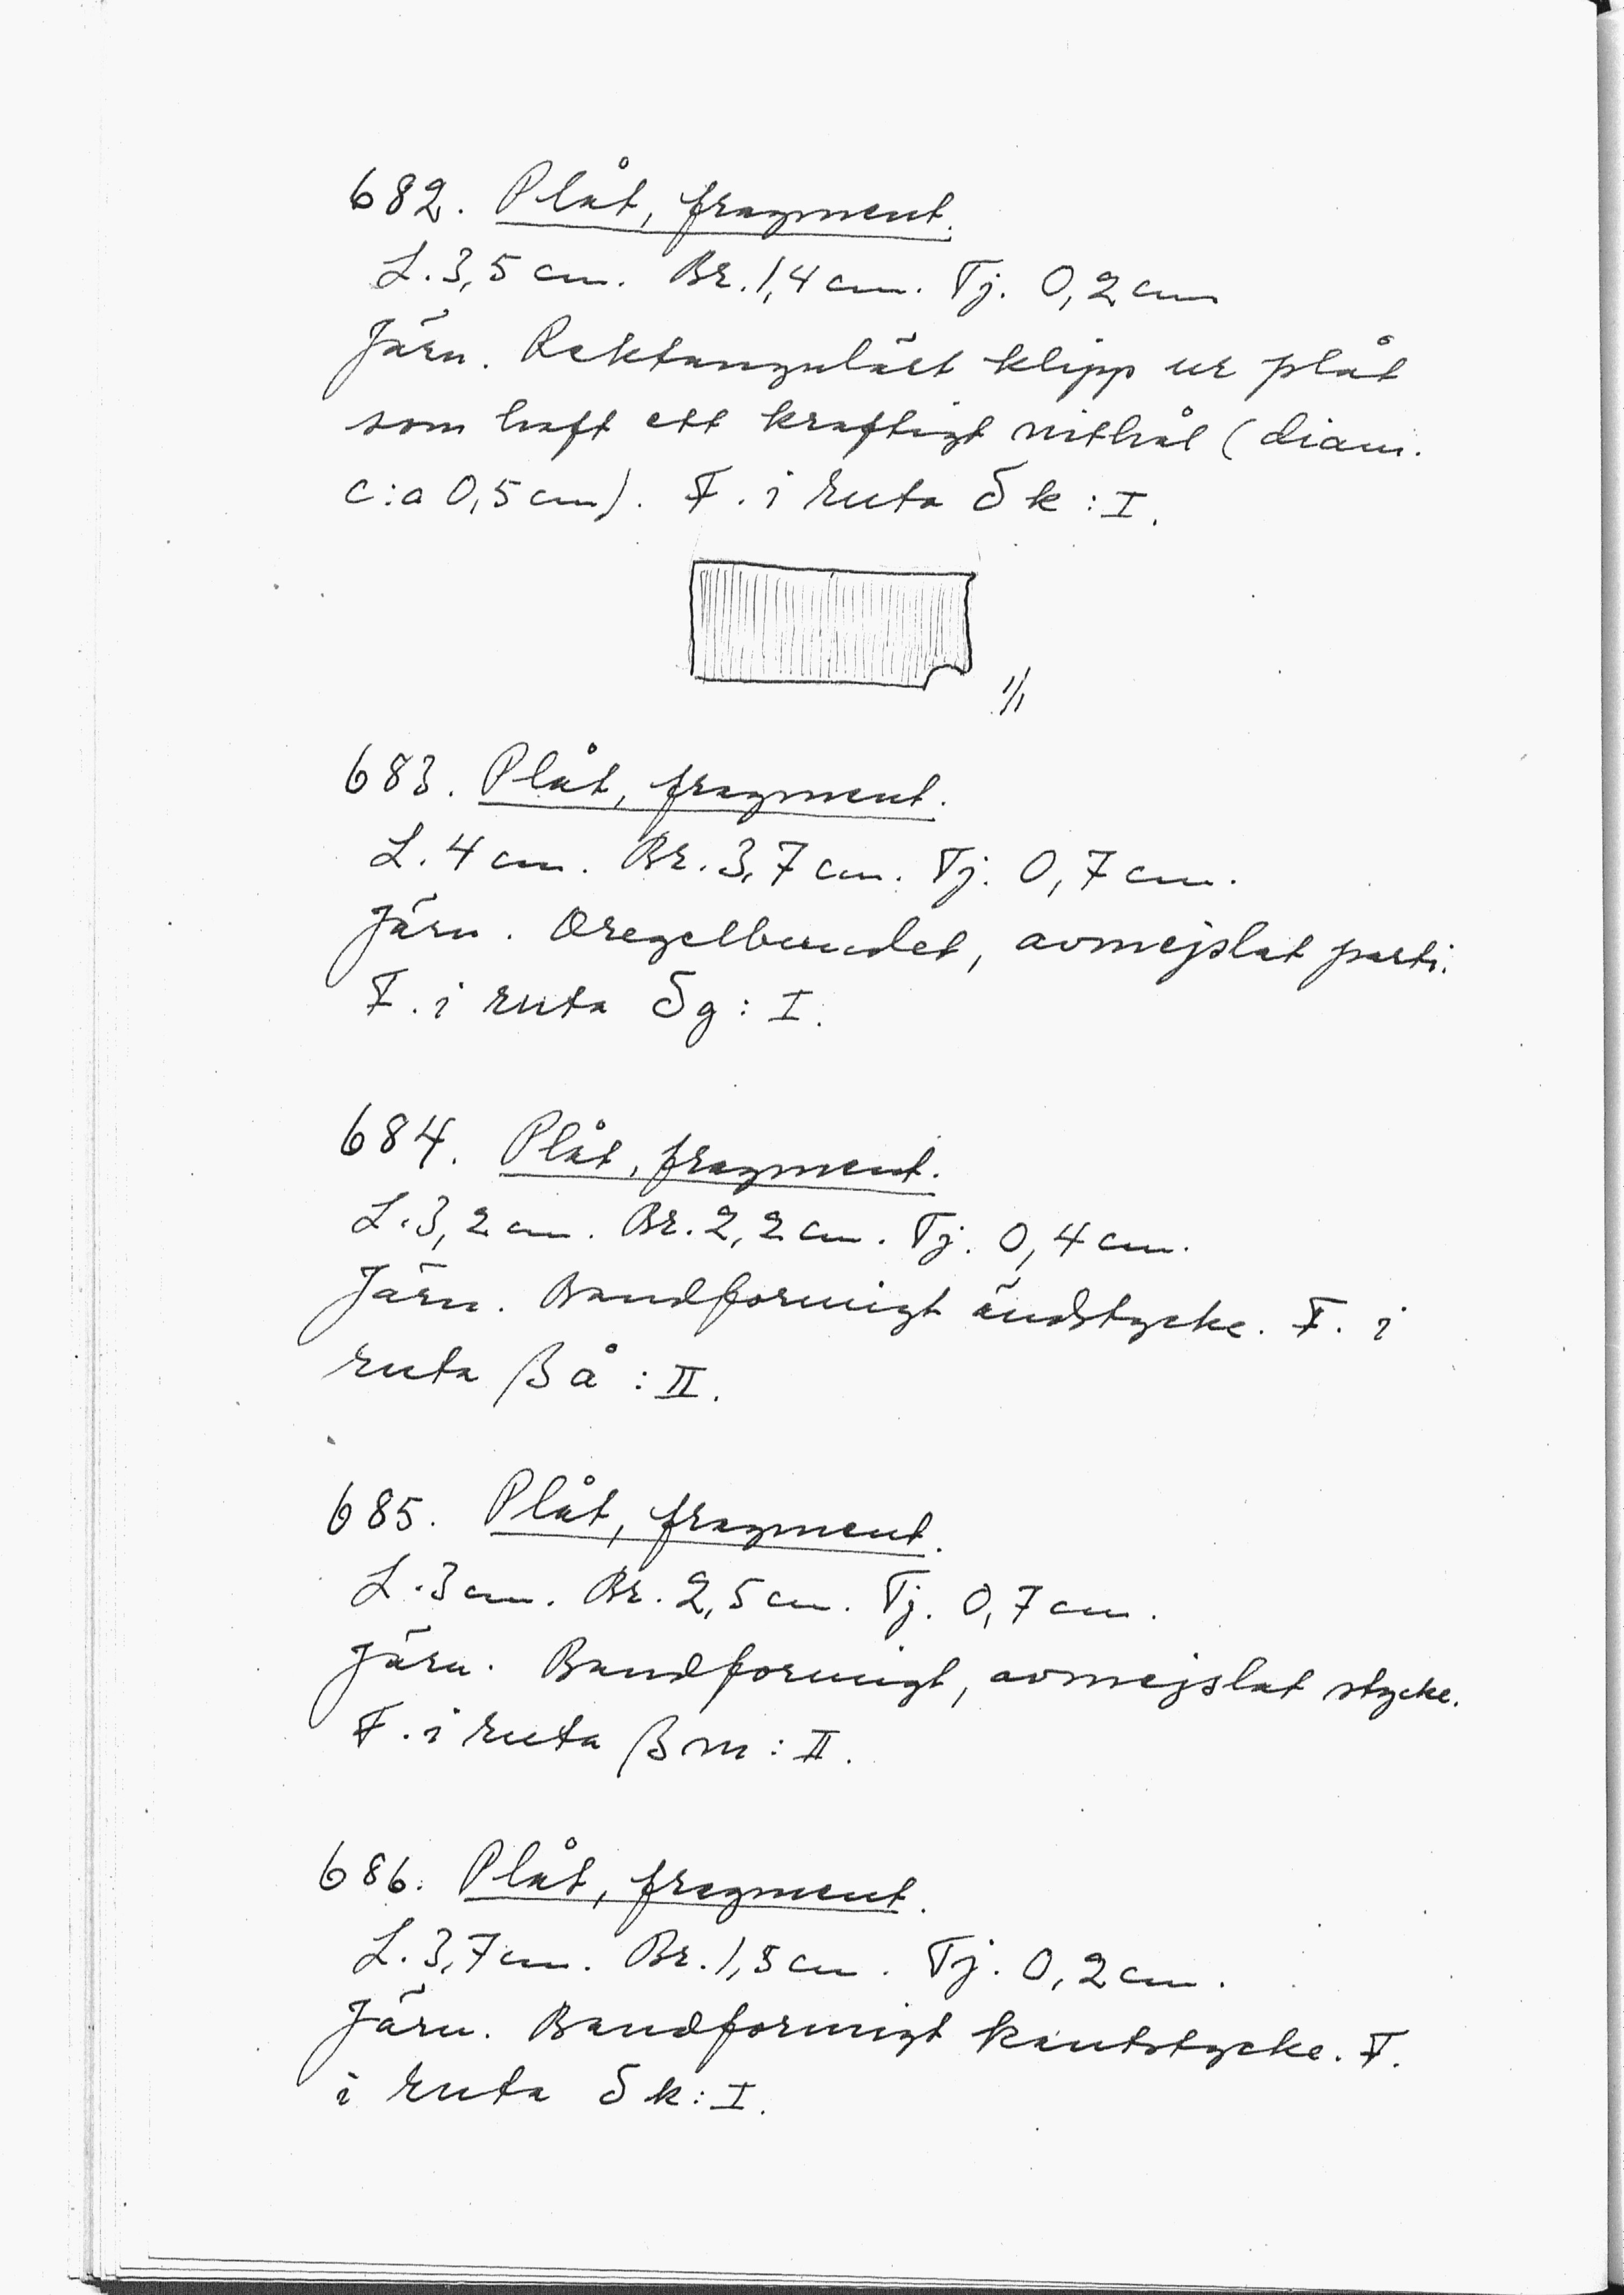 682. Plåt, fragment.
L. 3,5 cm. Br. 1,4 cm. Tj. 0,2 cm
Järn. Rektangulärt klipp ur plåt
som haft ett kraftigt nithål (diam.
c:a 0,5 cm). F. i ruta δk:I.
1/1
683. Plåt, fragment.
L. 4 cm. Br. 3,7 cm. Tj. 0,7 cm.
Järn. Oregelbundet, avmejslat parti.
F. i ruta δg: I.
684. Plåt, fragment.
L. 3,2 cm. Br. 2,2 cm. Tj. 0,4 cm.
Järn. Bandformigt ändstycke. F. i
ruta βå:II.
685. Plåt, fragment.
L. 3 cm. Br. 2,5 cm. Tj. 0,7 cm.
Järn. Bandformigt, avmejslat stycke.
F. i ruta βm:II.
686. Plåt, fragment.
L. 3,7 cm. Br. 1,8 cm. Tj. 0,2 cm.
Järn. Bandformigt kantstycke. F.
i ruta δk:I.